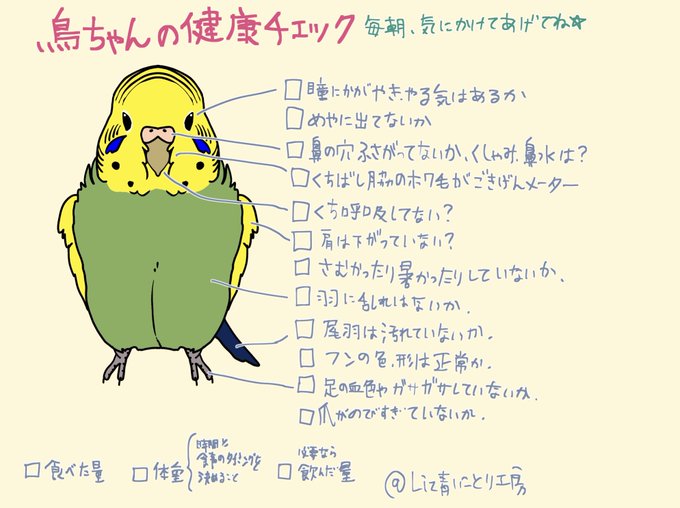 鳥ちゃんの健康チェック 毎朝、気にかけてあげてね☆
□瞳にかがやき、やる気はあるか
□めやに出てないか
□鼻の穴ふさがってないか、くしゃみ、鼻水は？
□くちばし脇のホワ毛がごきげんメーター
□くち呼吸してない？
□肩は下がっていない？
□さむかったり暑かったりしていないか、
□羽に乱れはないか、
□尾羽は汚れていないか、
□フンの色、形は正常か、
□足の血色やガサガサしていないか、
□爪がのびすぎていないか、
□食べた量
□体重
時間と
食事のタイミングを
決めること
必要なら
□飲んだ量
@して青いことり工房